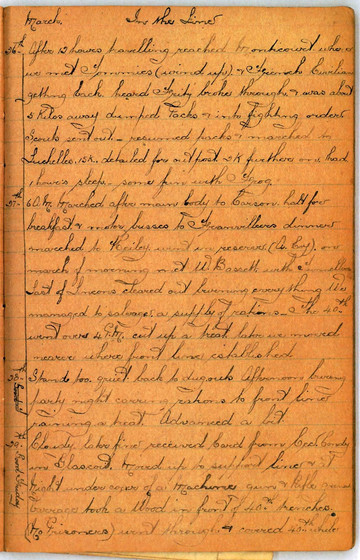 March. In the Line
26th After 12 hours travelling reached Mondicourt where
we met Tommies (wind up) & French Civilians
getting back heard Fritz broke through & was about
5 Kilos away dumped Packs & into fighting order
Scouts sent out - resumed packs & marched to
Luchelles. 15K. detailed for outpost 2K further on had
1 hours sleep. some fun with Frog.
27th 6 A.M. Marched after main body to half for
breakfast & motor busses to Franvillers dinner
marched to Heilly went in reserve on
march of morning met W Bassett with
last of cleared out burning every thing. We
managed to salvage a supply of rations. The 40th
went over 4 P.M. cut up a treat later we moved
nearer where front line established
28th Stand too. quiet back to dugouts Afternoon
party night carrying rations to front line
raining a treat. Advanced a bit
Cloudy later fine received Card from Cec
Moved up to support line & at
night under cover of a Machine gun & Rifle
barrage took a Wood in front of 40th trenches.
(No Prisoners) went through & covered 40th while